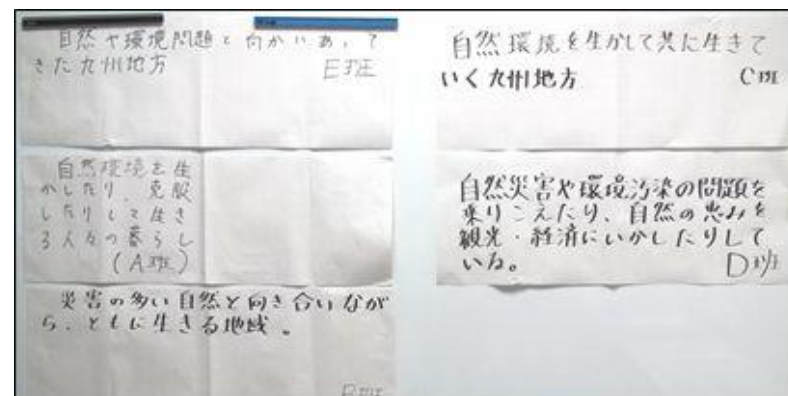 自然や環境問題と向かいあって
きた九州地方 E班
自然環境を生
かしたり、克服
したりして生き
る人々の暮らし
(A班)
災害の多い自然と向き合いなが
ら、ともに生きる地域。
B班
自然環境を生かして共に生きて
いく九州地方 C班
自然災害や環境汚染の問題を
乗りこえたり、自然の恵みを
観光・経済にいかしたりして
いる。 D班